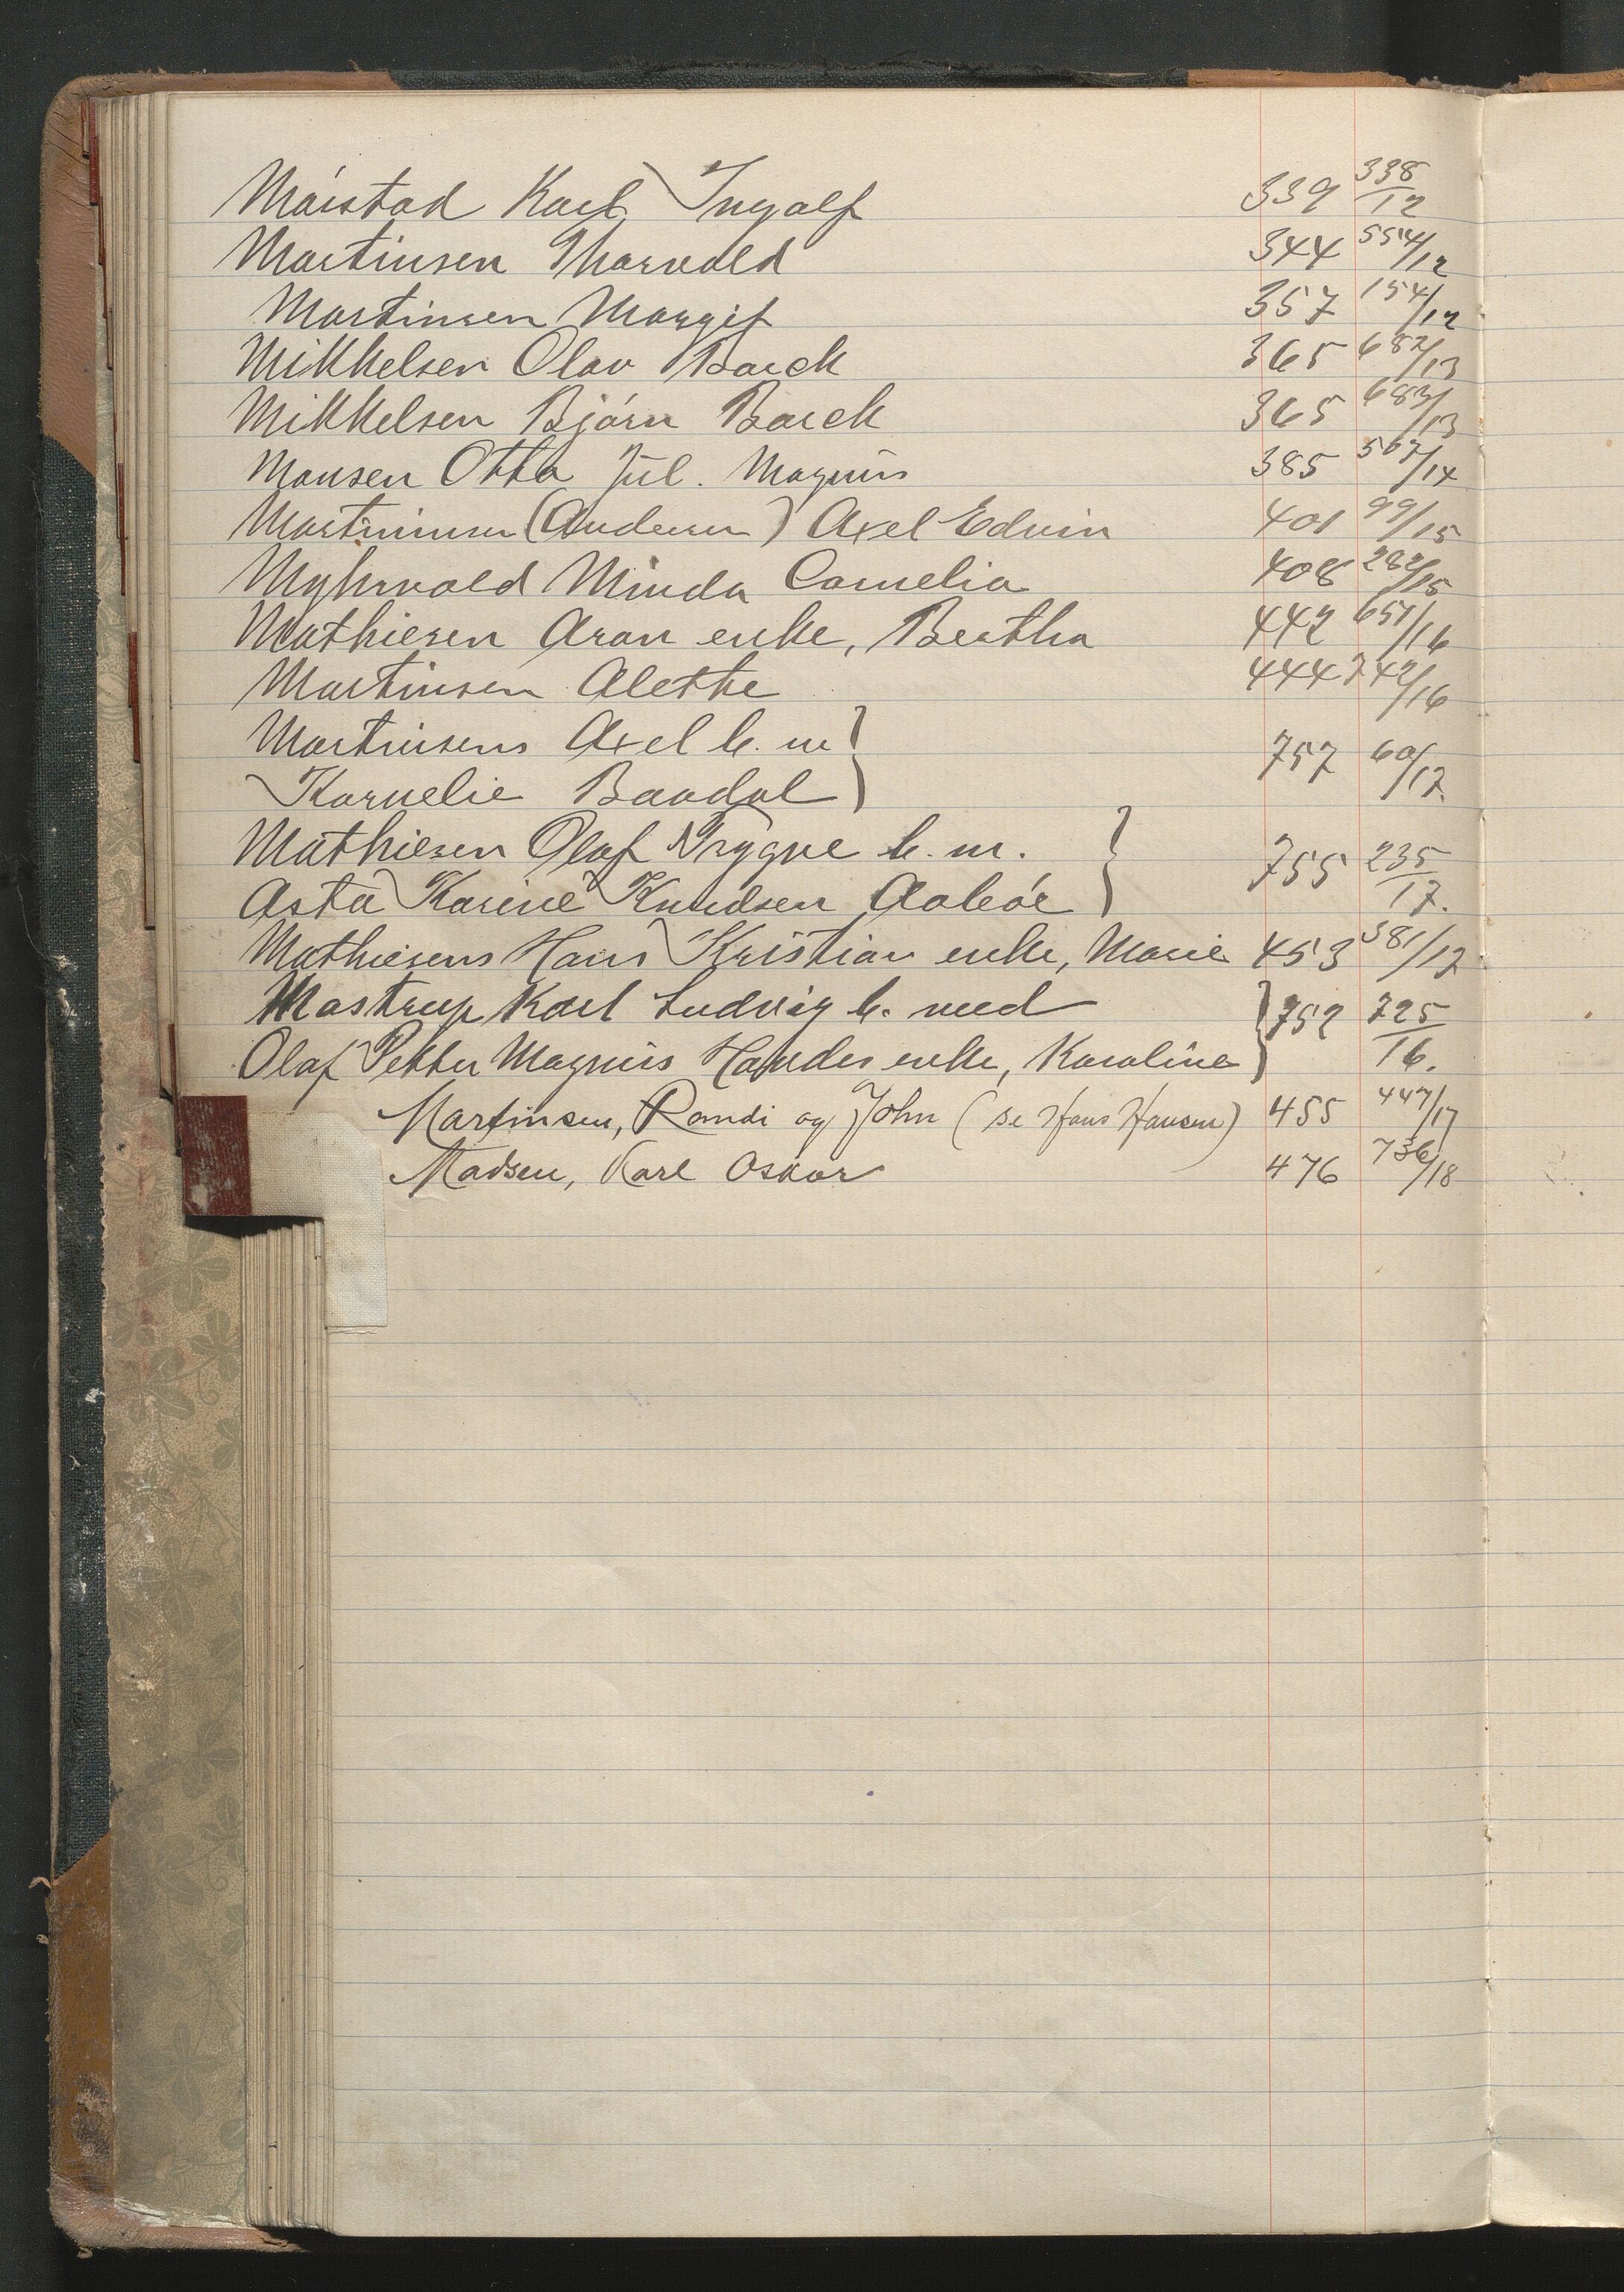 Mårstad Karl Ingolf 339 338/12
Martinsen Thorvald 344 554/12
Martinsen Margit 357 154/12
Mikkelsen Olav Barck 365 682/13
Mikkelsen Bjørn Barck 365 683/13
Monsen Otto Jul. Magnus 385 567/14
Martininsen (Andersen) Axel Edvin 401 99/15
Myhrvold Minda Cornelia 408 282/15
Mathiesen Aron enke, Bertha 442 651/16
Martinsen Alethe 444 742/16
Martinsens Axel b. m
Kornelie Baadal } 757 60/17.
Mathiesen Olaf Trygve b. m.
Asta Karine Knudsen } 755 235/17.
Mathiesens Hans Kristian enke, Marie 453 381/17
Mastrup Karl Ludvig b. med
Olaf Petter Magnus enke, Karoline } 752 725/16.
Martinsen, Randi og John (se Hans Hansen) 455 447/17
Madsen, Karl Oskar 476 736/18